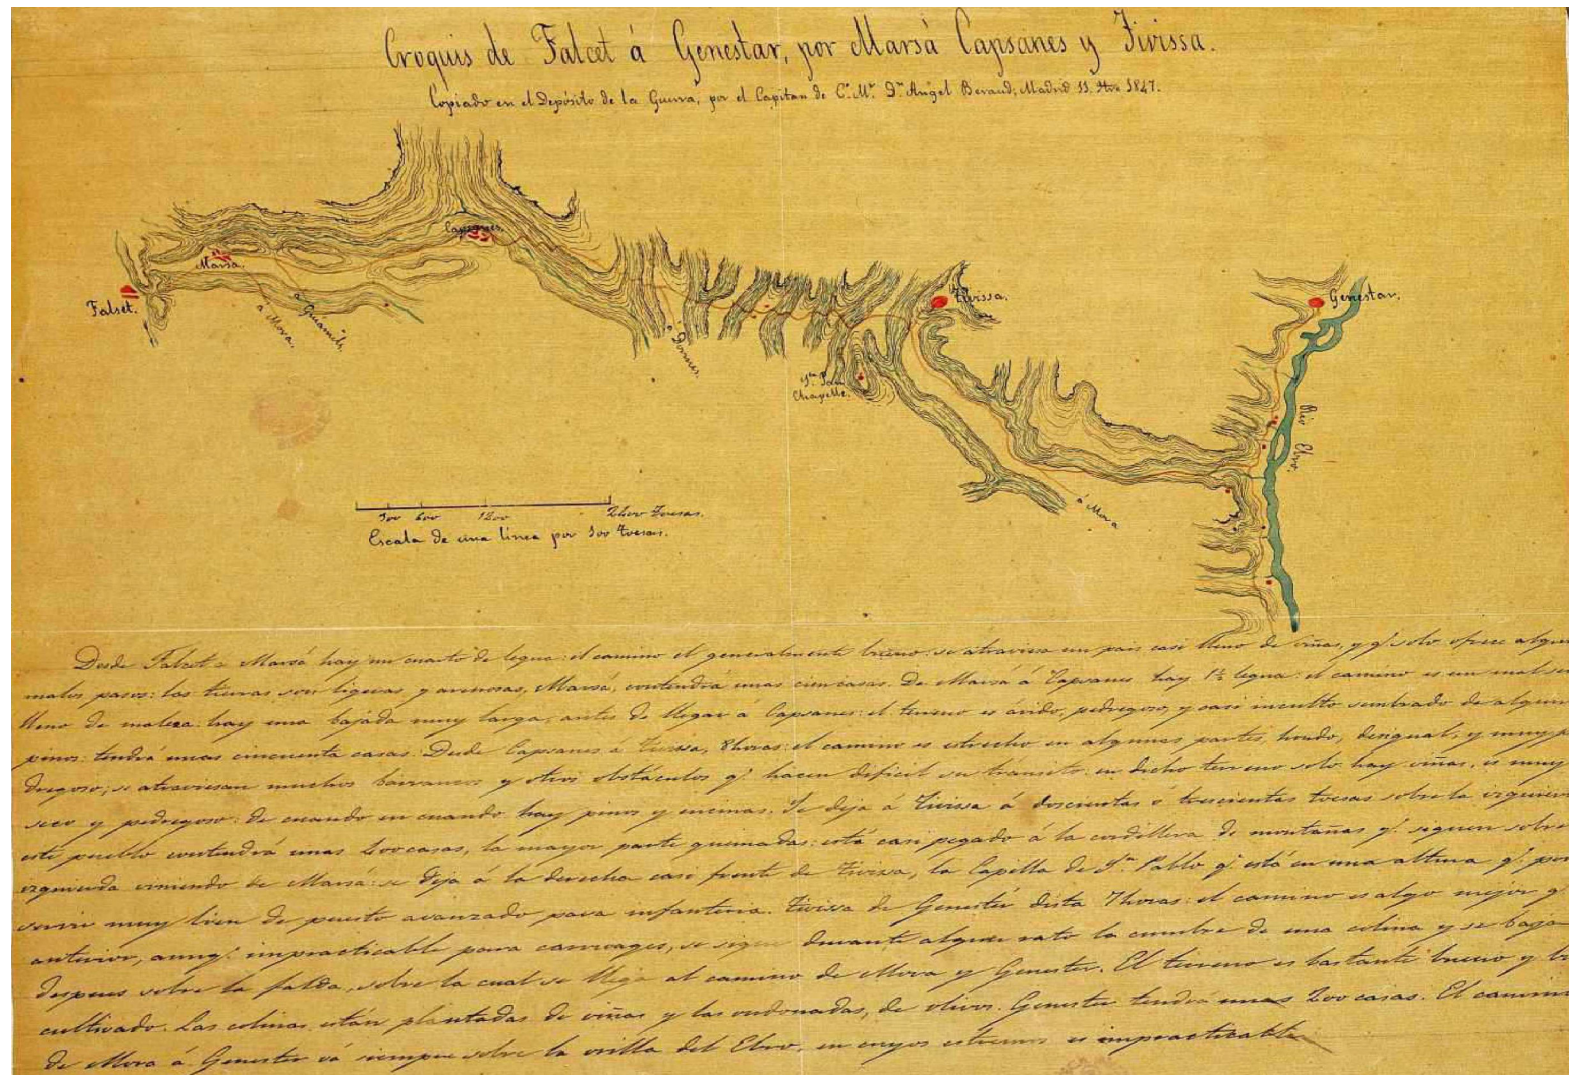 Croquis de Falcet á Genestar, por Marsá Capsanes y Tivissa.
Copiado en el Depósito de la Guerra, por el Capitan de C.º M.r D.n Angel Beraud; Madrid 11 1847.
Capsanes.
Marsa.
Falset.
á Mora.
á Guiamets.
á
Tivissa.
Genestar.
Chapelle.
Rio Ebro.
á Mora
300 600 1200 2400 Toesas.
Escala de una linea por 100 toesas.
Desde Falcet a Marsá hay un cuarto de legua: el camino el generalmente bueno: se atraviesa un pais casi lleno de viñas, y q.e solo ofrece algun
malos pasos: las tierras son ligeras y arenosas, Marsá, contendrá unas cien casas. De Marsá á Capsanes hay 1½ legua: el camino es un mal
lleno de maleza: hay una bajada muy larga, antes de llegar á Capsanes: el terreno es árido, pedregoso, y casi inculto sembrado de algun
pinos: tendrá unas cincuenta casas. Desde Capsanes á Tivissa, 8 horas: el camino es estrecho en algunas partes, hondo, desigual, y muy p
dregoso; se atraviesan muchos barrancos y otros obstáculos q.e hacen dificil su tránsito: en dicho terreno solo hay viñas, es muy
seco y pedregoso: de cuando en cuando hay pinos y encinas. Se deja á Tivissa á doscientas ó trescientas toesas sobre la izquierda
este pueblo contendrá unas 200 casas, la mayor parte quemadas: está casi pegado á la cordillera de montañas q.e siguen sobre
izquierda viniendo de Marsá: se deja á la derecha casi frente de Tivisa, la Capilla de S.n Pablo q.e está en una altura q.e po
servir muy bien de puesto avanzado para infanteria. Tivisa de Genestér dista 7 horas: el camino es algo mejor q.e
anterior, aunq.e impracticable para carruages, se sigue durante algun rato la cumbre de una colina y se baja
despues sobre la falda, sobre la cual se llega al camino de Mora y Genester. El terreno es bastante bueno y b
cultivado. Las colinas están plantadas de viñas y las ondonadas, de olivos. Genester tendrá unas 200 casas. El camino
de Mora á Genester vá siempre sobre la orilla del Ebro, en cuyos estremos es impracticable